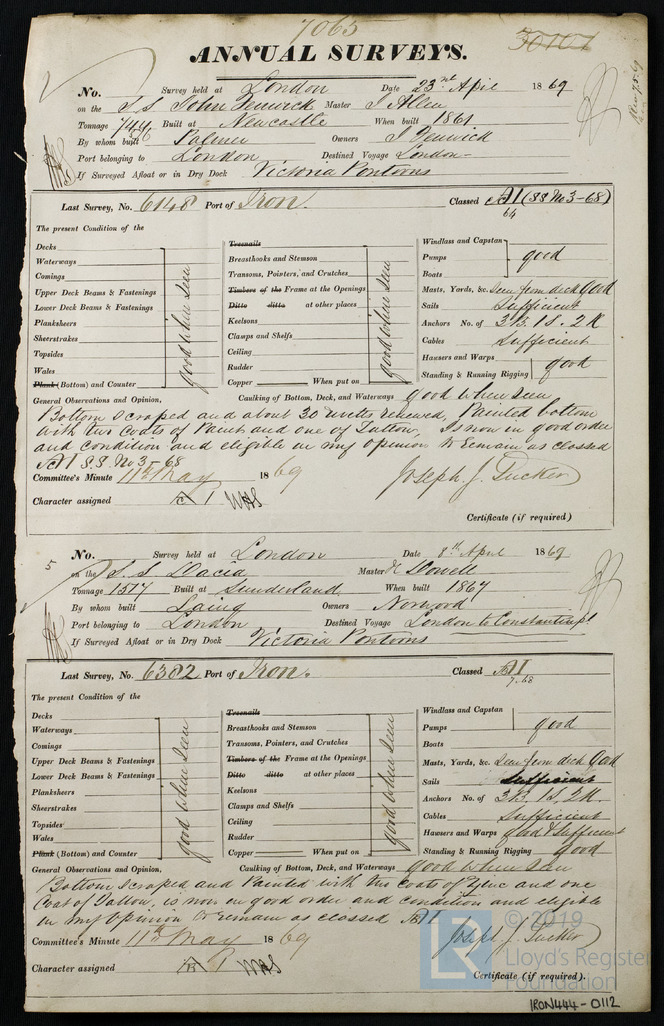 7065
30107
ANNUAL SURVEYS.
No. Survey held at London Date 23rd April 1869
on the S.S. John Fenwick Master J Allen
Tonnage 744 Built at Newcastle When built 1861
By whom built Palmer Owners J Fenwick
Port belonging to London Destined Voyage London
If Surveyed Afloat or in Dry Dock Victoria Pontoons
Last Survey, No. 6148 Port of Iron. Classed A1 (SS No 3-68)
64
The present Condition of the
Decks
Waterways
Comings
Upper Deck Beams & Fastenings
Lower Deck Beams & Fastenings
Planksheers
Sheerstrakes
Topsides
Wales
Plank (Bottom) and Counter
good when seen
Treenails
Breasthooks and Stemson
Transoms, Pointers, and Crutches
Timbers of the Frame at the Openings
Ditto ditto at other places
Keelsons
Clamps and Shelfs
Ceiling
Rudder
Copper When put on
good when seen
Windlass and Capstan
Pumps good
Boats
Masts, Yards, &c. seen from deck Good
Sails Sufficient
Anchors No. of 3B. 1S. 2K
Cables Sufficient
Hausers and Warps good
Standing & Running Rigging
General Observations and Opinion, Caulking of Bottom, Deck, and Waterways good when seen
Bottom scraped and about 30 rivets renewed, Painted bottom
with two coats of Paint and one of Tallow, Is now in good order
and condition and eligible in my opinion to remain as classed
A1 S.S. No 3-68
Committee's Minute 11th May 1869 Joseph J. Tucker
Character assigned A 1
Certificate (if required)
5
No. Survey held at London Date 8th April 1869
on the S.S. Dacia Master Dowell
Tonnage 1577 Built at Sunderland When built 1867
By whom built Laing Owners Norwood
Port belonging to London Destined Voyage London to Constantinpl
If Surveyed Afloat or in Dry Dock Victoria Pontoons
Last Survey, No. 6382 Port of Iron. Classed A1
7.68
The present Condition of the
Decks
Waterways
Comings
Upper Deck Beams & Fastenings
Lower Deck Beams & Fastenings
Planksheers
Sheerstrakes
Topsides
Wales
Plank (Bottom) and Counter
good when seen
Treenails
Breasthooks and Stemson
Transoms, Pointers, and Crutches
Timbers of the Frame at the Openings
Ditto ditto at other places
Keelsons
Clamps and Shelfs
Ceiling
Rudder
Copper When put on
good when seen
Windlass and Capstan
Pumps good
Boats
Masts, Yards, &c. seen from deck Good
Sails Sufficient
Anchors No. of 3B. 1S. 2K.
Cables Sufficient
Hausers and Warps good & sufficient
Standing & Running Rigging good
General Observations and Opinion, Caulking of Bottom, Deck, and Waterways good when seen
Bottom scraped and Painted with two coats of Zinc and one
Coat of Tallow, is now in good order and condition and eligible
in my opinion to remain as classed A1
Committee's Minute 11th May 1869 Joseph J. Tucker
Character assigned A 1
Certificate (if required).
© 2019
Lloyd's Register
Foundation
IRON444-0112